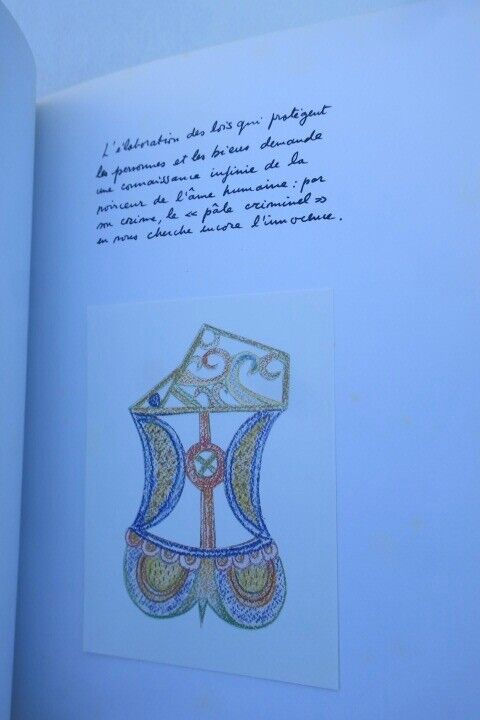 L'élaboration des lois qui protègent
les personnes et les biens demande
une connaissance infinie de la
noirceur de l'âme humaine : par
son crime, le « pâle criminel »
en nous cherche encore l'innocence.